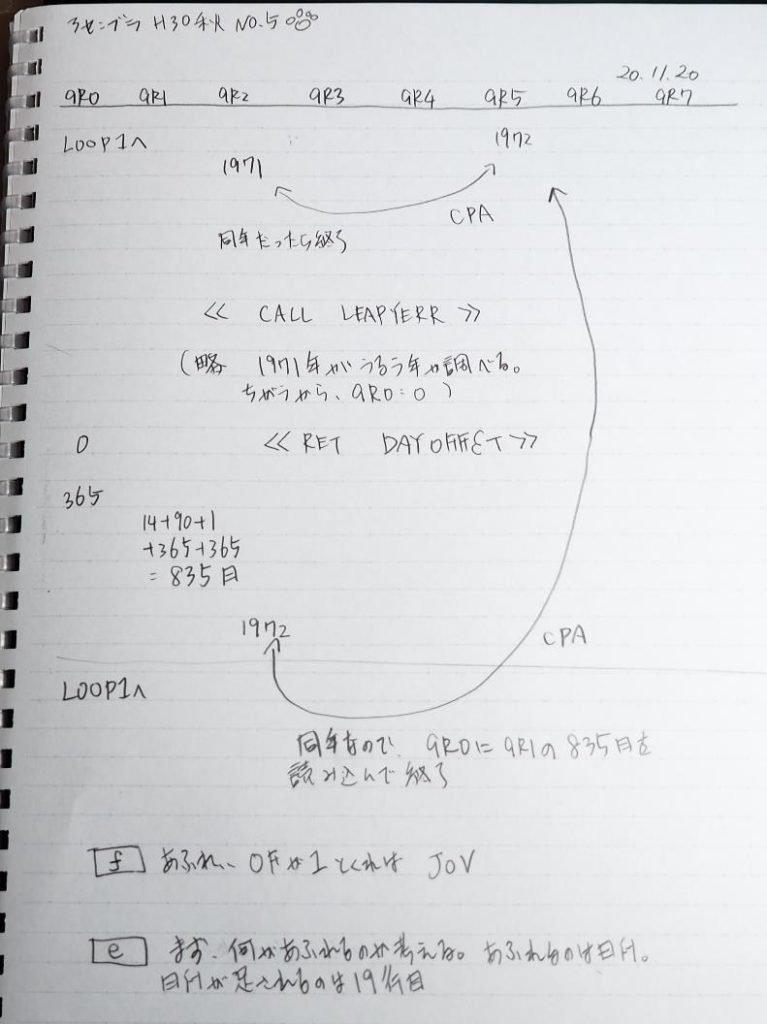 アセンブラ H30秋 NO.5
20.11.20
GR0 GR1 GR2 GR3 GR4 GR5 GR6 GR7
LOOP1へ
1972
1971
CPA
同年だったら終了
<< CALL LEAPYERR >>
(略 1971年がうるう年か調べる。
ちがうから、GR0:0)
0 << RET DAYOFFSET >>
365
14+90+1
+365+365
=835日
1972
CPA
LOOP1へ
同年なので、GR0にGR1の835日を
読み込んで終了
f あふれ、OFが1とくれば JOV
e まず、何があふれるのか考える。あふれるのは日付。
日付が足されるのは19行目